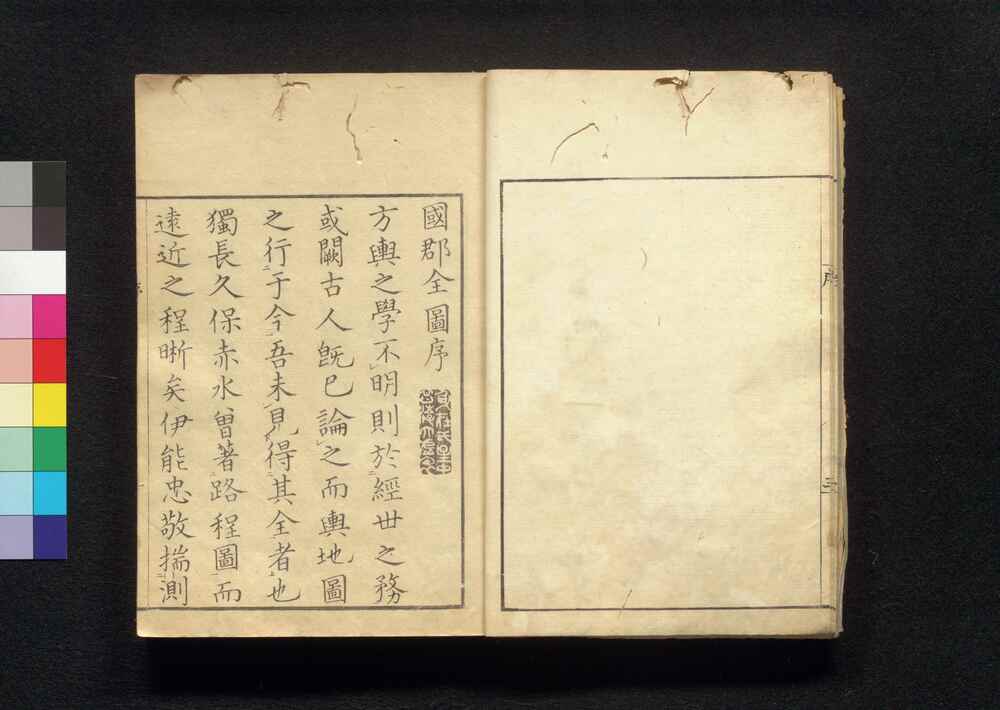 序
三
國郡全圖序
方輿之學不明則於經世之務
或闕古人旣已論之而輿地圖
之行于今吾未見得其全者也
獨長久保赤水曾著路程圖而
遠近之程晰矣伊能忠敬揣測